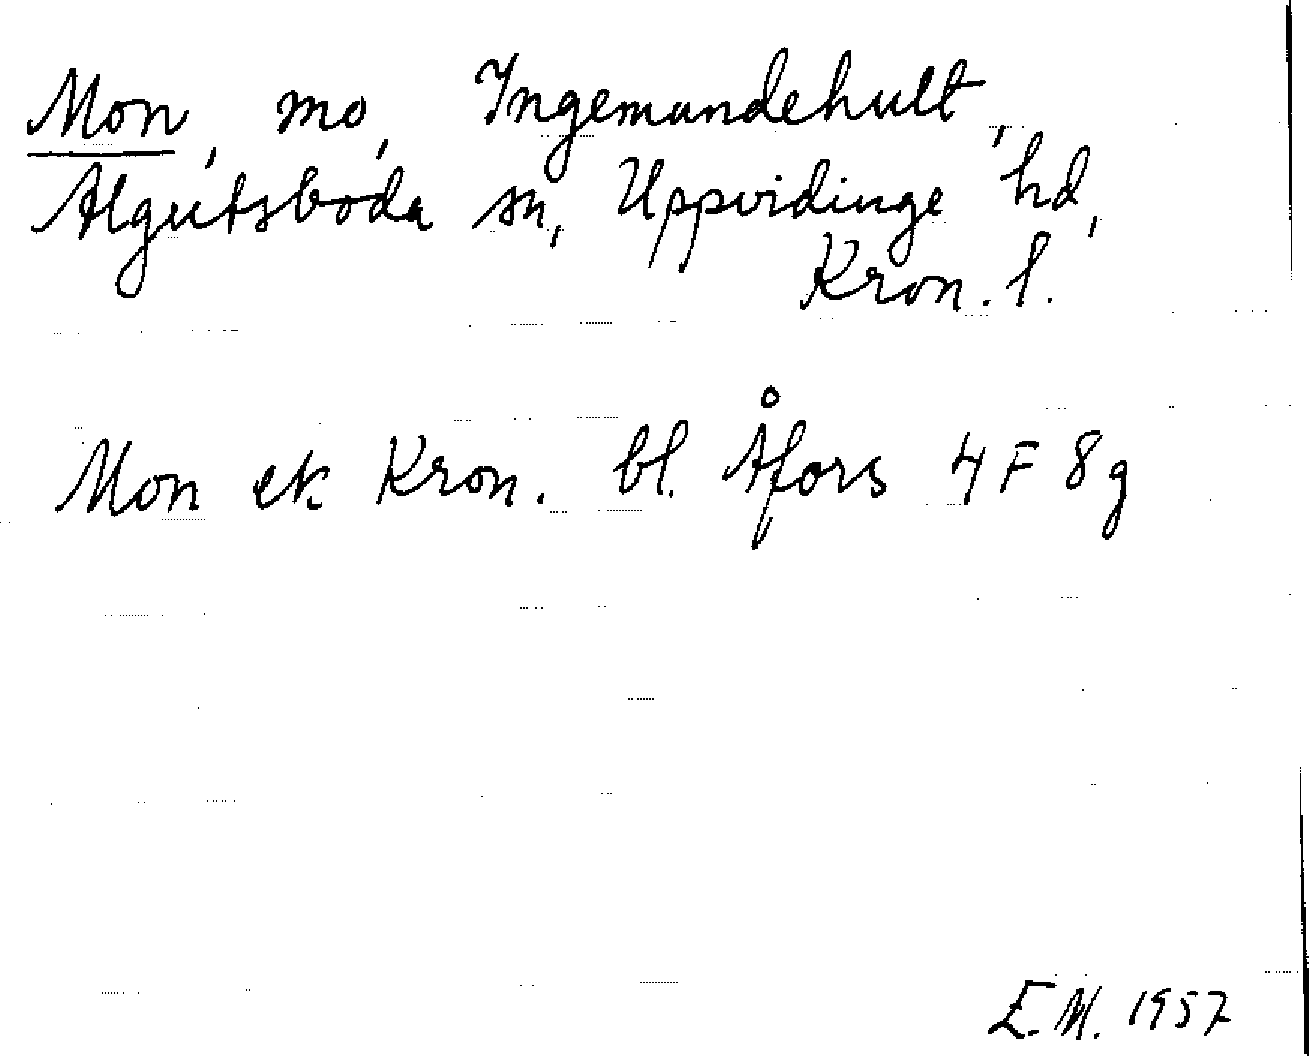 Mon, mo, Ingemundehult,
Algutsboda sn, Uppvidinge hd,
Kron. l.
Mon ek Kron. bl. Åfors 4 F 8 g
E.M. 1957